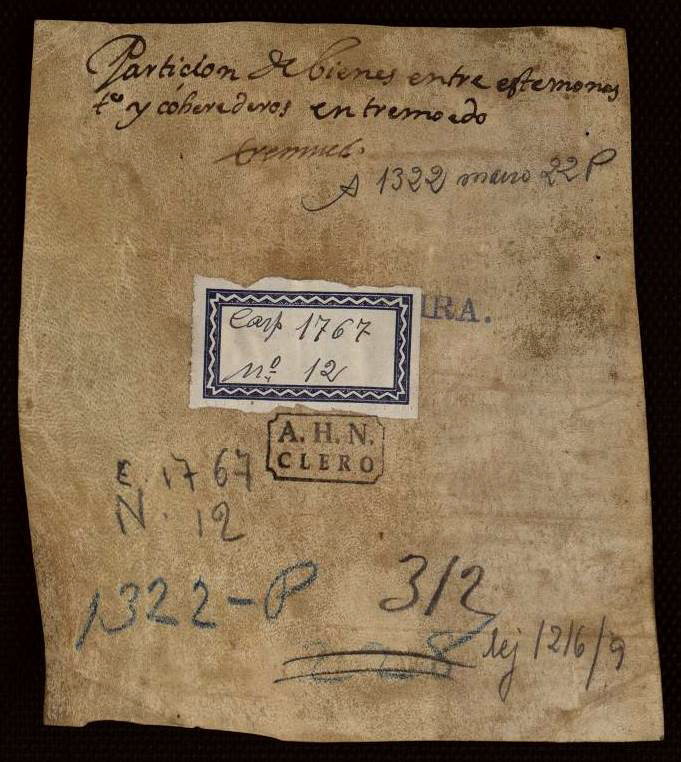 Particion de bienes entre este monas
tº y coherederos en tremoedo
tremued.
A 1322 marzo 22 P
IRA.
Carp 1767
nº 12
A. H. N.
CLERO
C. 1767
N. 12
1322-P
312
2008
lej 1216/9